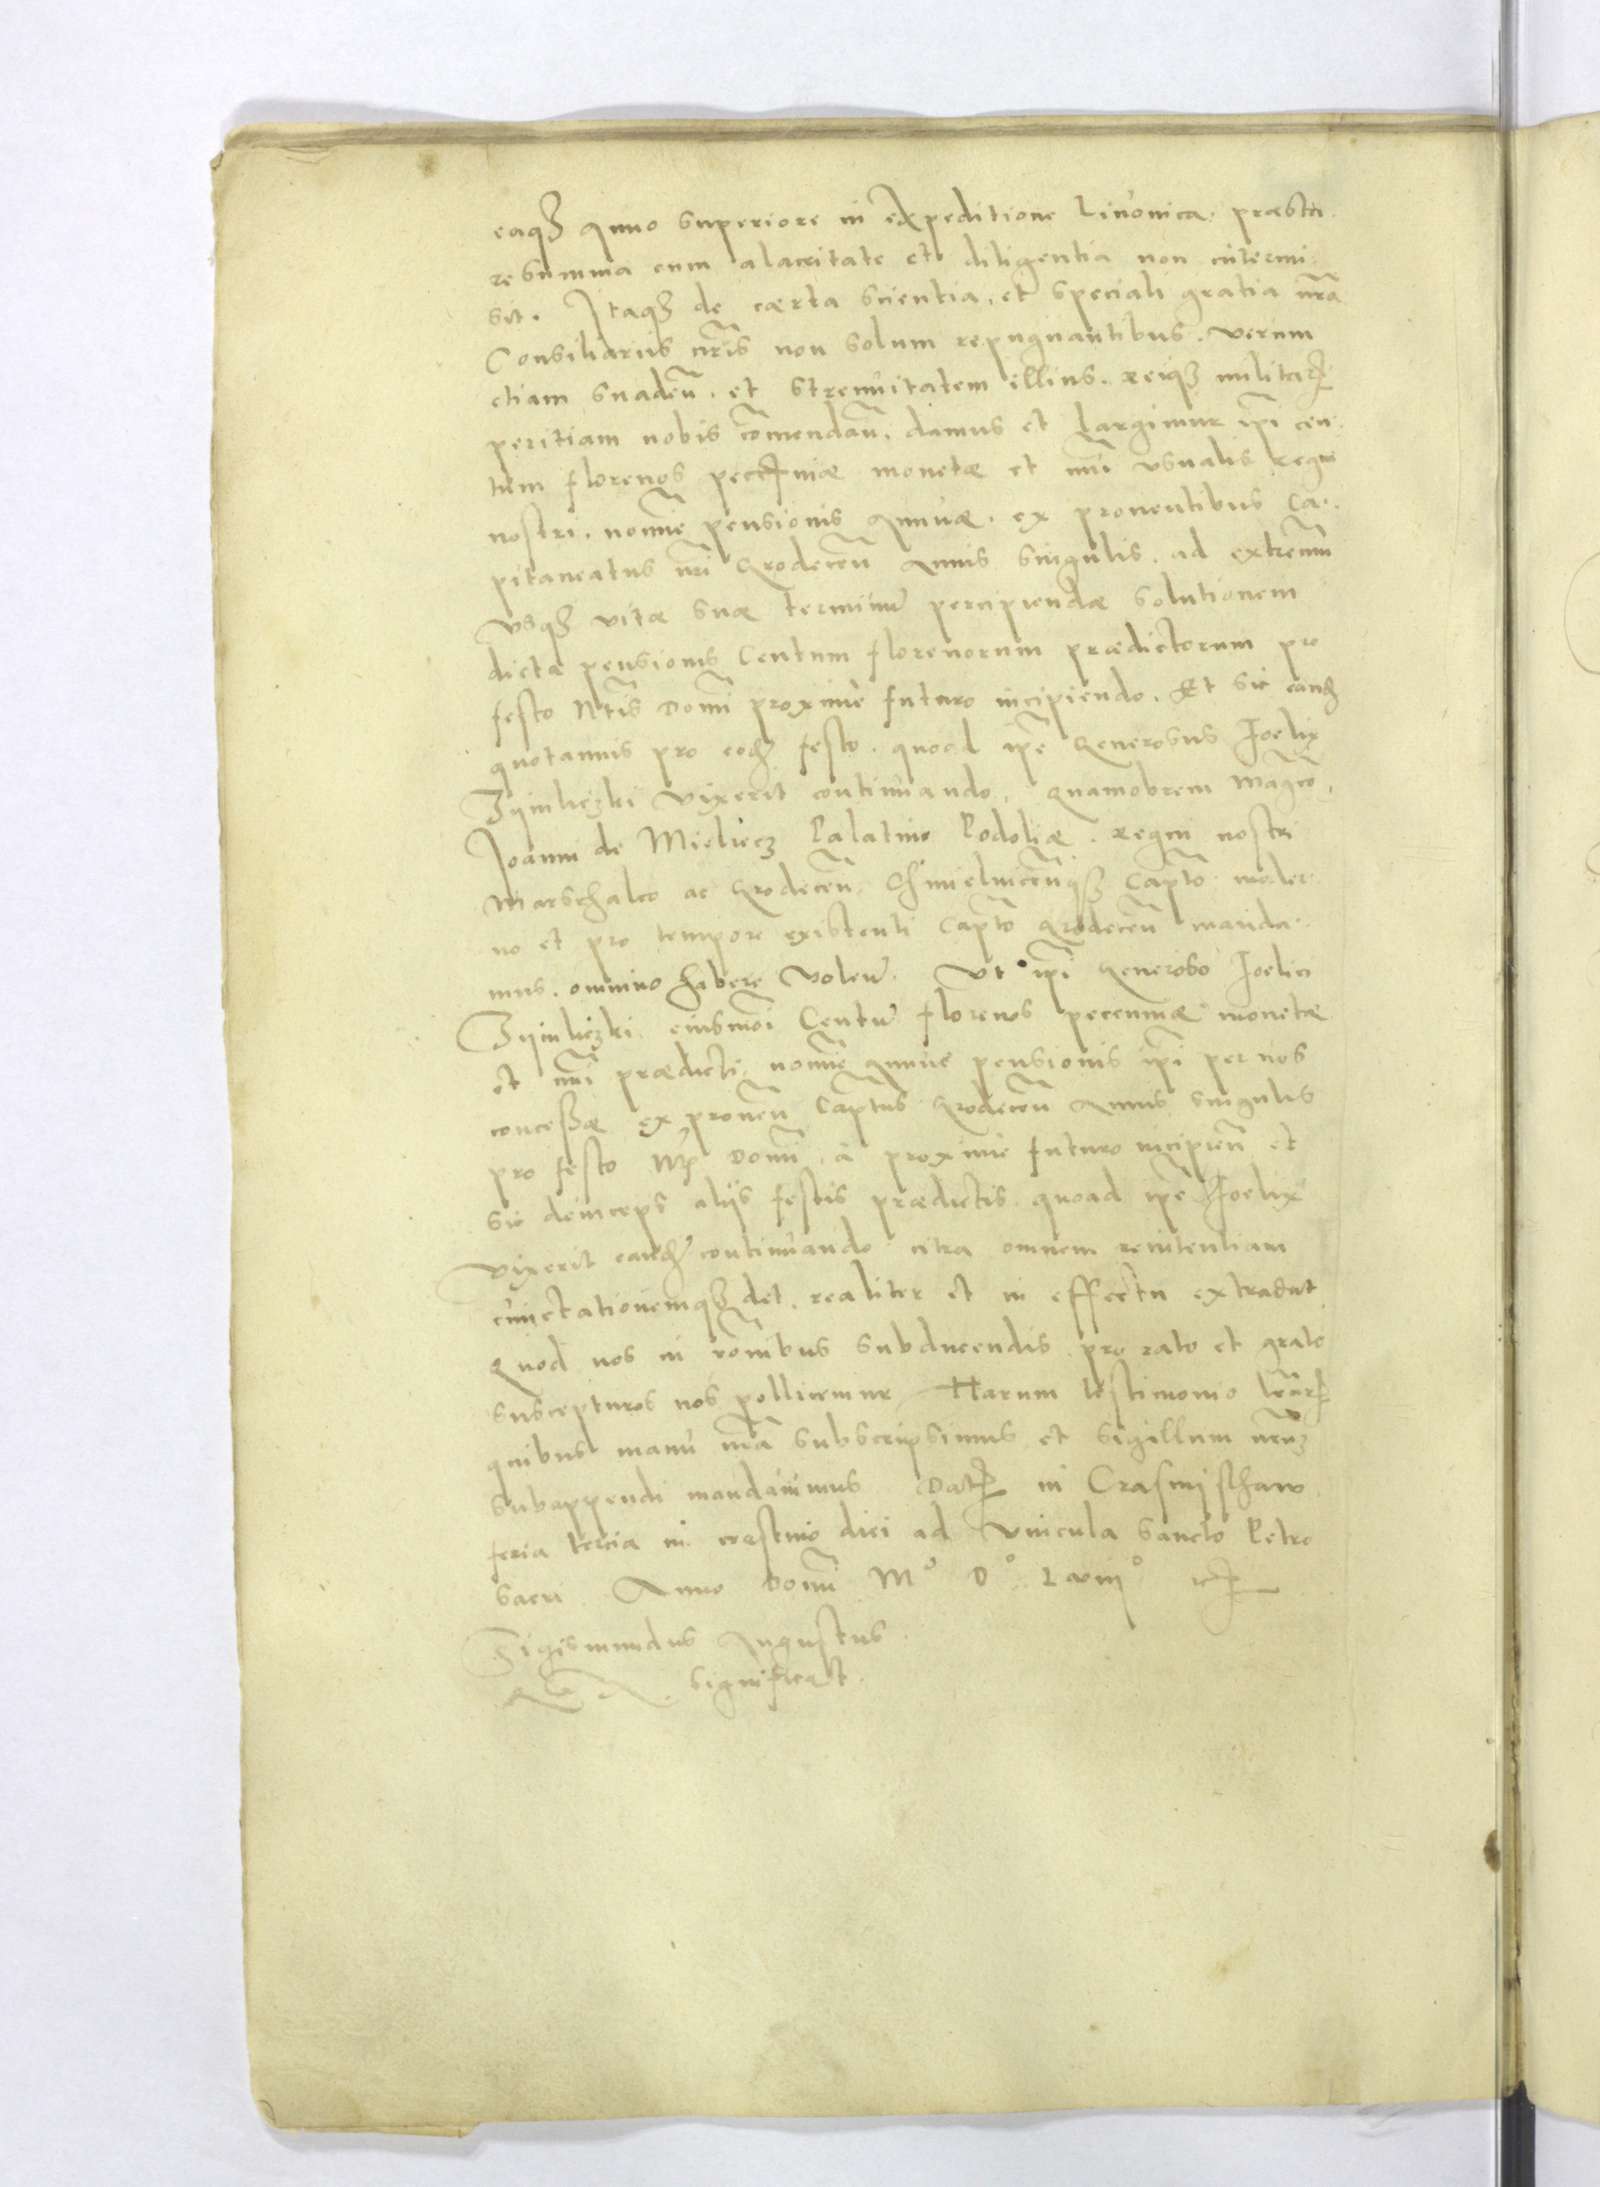 eaqȝ Anno superiore in expeditione Liuonica, præsta-
re summa cum alacritate et diligentia non intermi-
sit. Itaqȝ de cærta scientia, et speciali gratia nr̃a
Consiliariis nr̃is non solum repugnantibus, verum
etiam suadeñ, et strenuitatem illius, reiqȝ militaꝝ
peritiam nobis cõmendañ, damus et largimur ip̃i cen-
tum florenos peccuniæ monetæ et nr̃i vsualis regni
nostri, noĩe pensionis Annuæ, ex prouentibus Ca-
pitaneatus nr̃i Grodeceñ Annis singulis, ad extremũ
vsqȝ vitæ suæ terminũ percipiendæ solutionem
dictæ pensionis Centum florenorum prædictorum pro
festo Nt̃is Domĩ proxime futuro incipiendo. Et sic eandȝ
quotannis pro eodȝ festo, quoad ip̃e Generosus Foelix
vixerit continuando, Quamobrem Mag̃co,
Joanni de Mieliecz Palatino Podoliæ, regni nostri
Marschalco ac Grodeceñ, Chmielniceñqȝ Capt̃o moder-
no et pro tempore existenti Capt̃o Grodeceñ manda-
mus, omnino habere volẽn. Vt ip̃i Generoso Foelici
eiusmõi Centũ florenos peccuniæ monetæ
et nr̃i prædicti, noĩe Annuæ pensionis ip̃i per nos
concessæ ex proueñ Capt̃us Grodeceñ Annis singulis
pro festo Domĩ, à proxime futuro incipieñ et
sic deinceps aliis festis prædictis quoad ip̃e Foelix
vixerit eandȝ continuando citra omnem renitentiam
cunctationemqȝ det, realiter et in effectu extradat
Quod nos in rõnibus subducendis, pro rato et grato
suscepturos nos pollicemur Harum testimonio lr̃arꝝ
quibus manu nr̃a subscripsimus et sigillum nr̃mȝ
subappendi mandauimus Datꝝ in Crasnisthaw
feria tercia in crastino diei ad vincula sancto Petro
sacri Anno Domĩ M° D° Lviii°
Sigismundus Augustus
significat.